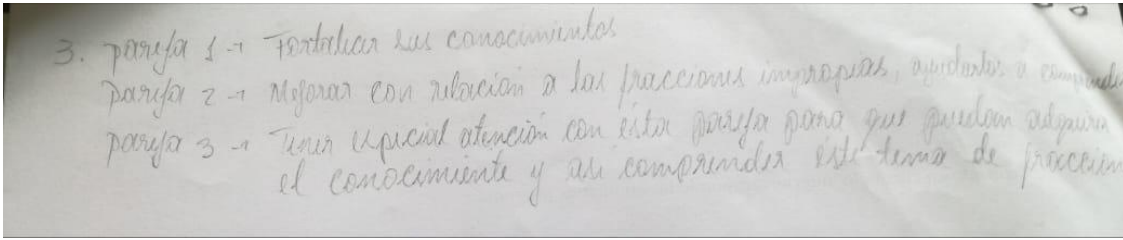 3. pareja 1 → Fortalecer sus conocimientos
pareja 2 → Mejorar con relación a las fracciones impropias, ayudarlos a comprender
pareja 3 → Tener especial atención con esta pareja para que puedan adquirir
el conocimiento y asi comprender este tema de fraccion